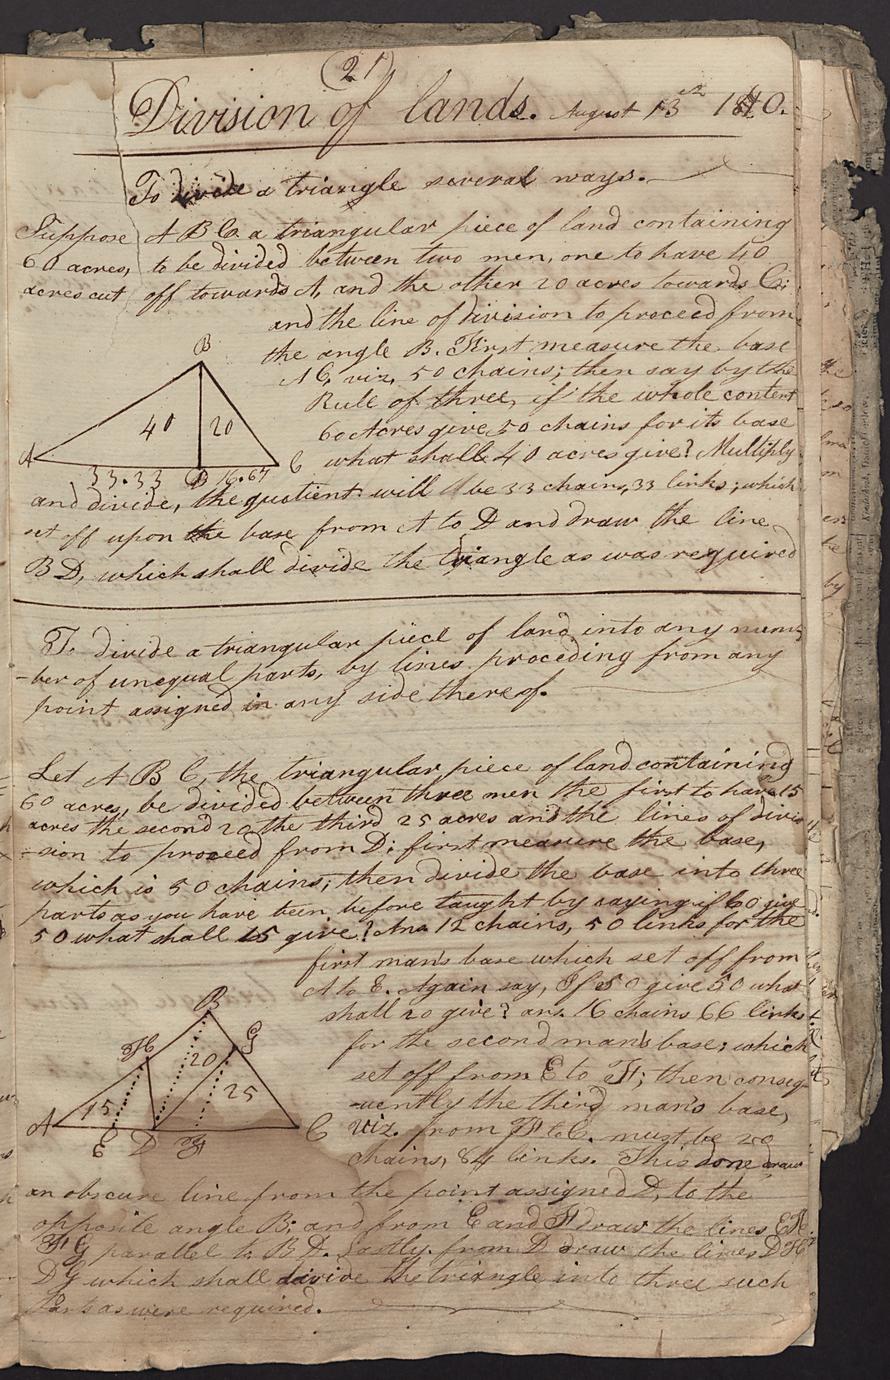 (21)
Division of lands. August 13th 1840.
To divide a triangle several ways.
Suppose A B C a triangular piece of land containing
60 acres, to be divided between two men, one to have 40
acres cut off towards A, and the other 20 acres towards C;
and the line of division to proceed from
the angle B. First measure the base
A C, viz, 50 chains; then say by the
Rule of three, if the whole content
60 acres give 50 chains for its base
what shall 40 acres give? Multiply
and divide, the quotient will be 33 chains, 33 links; which
set off upon the base from A to D and draw the line
B D, which shall divide the triangle as was required
B
40 20
A C
33.33 D 16.67
To divide a triangular piece of land into any num
-ber of unequal parts, by lines proceding from any
point assigned in any side thereof.
Let A B C, the triangular piece of land containing
60 acres, be divided between three men the first to have 15
acres the second 20 the third 25 acres and the lines of divis
-sion to proceed from D; first measure the base,
which is 50 chains; then divide the base into three
parts as you have been before taught by saying if 60 give
50 what shall 15 give? Ans 12 chains, 50 links for the
first man's base which set off from
A to E. Again say, If 50 give 50 what
shall 20 give? ans. 16 chains 66 links
for the second man's base; which
set off from E to F; then conseq-
-uently the third man's base,
viz. from F to C. must be 20
chains, 84 links. This done draw
an obscure line from the point assigned D, to the
opposite angle B; and from E and F draw the lines EH
FG parallel to B D. Lastly from D draw the lines DH
DG which shall divide the triangle into three such
Parts as were required.
B
H 20 G
15 25
A C
E D F